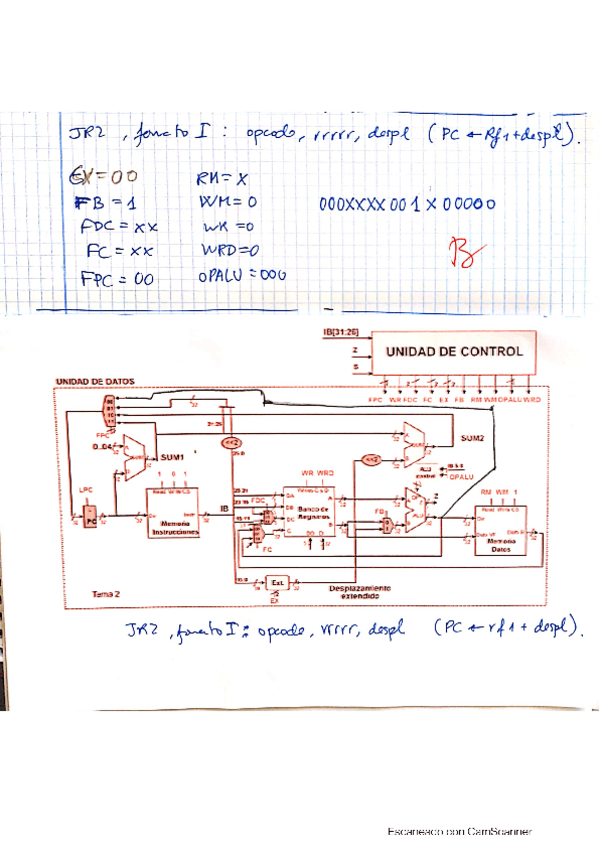 JR2 , formato I : opcode, rrrrr, despl ( PC ← Rf1+despl ).
EX=00
RM= X
FB = 1
WM= 0
000XXXX 00 1 X 00000
FDC = XX
WR =0
FC = XX
WRD=0
B
FPC = 00
OPALU = 000
IB[31:26]
Z
S
UNIDAD DE CONTROL
UNIDAD DE DATOS
FPC WR FDC FC EX FB RM WM OPALU WRD
32
FPC
0..04
SUM1
SUM2
<<2
<<2
ALU control
OPALU
LPC
1 0 1
WR WRD
RM WM 1
PC
IB
FDC
Banco de Registros
FB
ALU
Memoria Instrucciones
Memoria Datos
FC
Ext.
EX
Desplazamiento extendido
Tema 2
JR2 , formato I : opcode, rrrrr, despl ( PC ← rf1 + despl ).
Escaneado con CamScanner